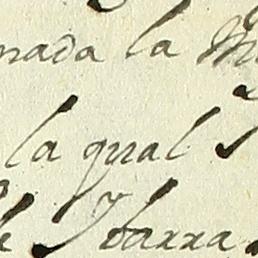 nada la
la qual
de Ybarra